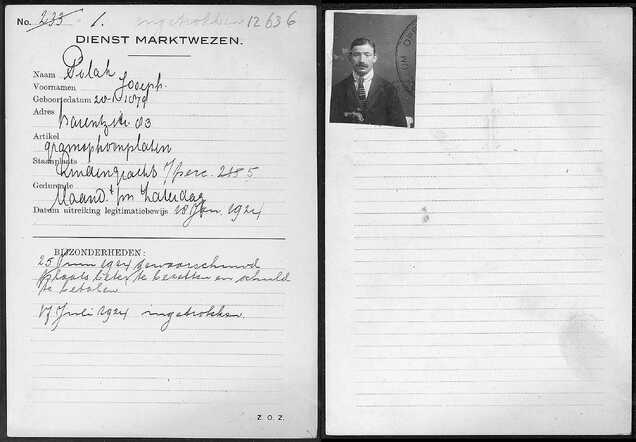 No. 233 1. ingetrokken 12636
DIENST MARKTWEZEN.
Naam Polak
Voornamen Joseph.
Geboortedatum 20-1-1879
Adres
Barentzstr. 83
Artikel
gramophoonplaten
Staanplaats
Lindengracht t/perc. 218 5
Gedurende
Maand. t/m Zaterdag
Datum uitreiking legitimatiebewijs 18 Jan. 1924
BIJZONDERHEDEN:
25 Juni 1924 gewaarschuwd
plaats beter te bezetten en schuld
te betalen
17 Juli 1924 ingetrokken.
Z. O. Z.